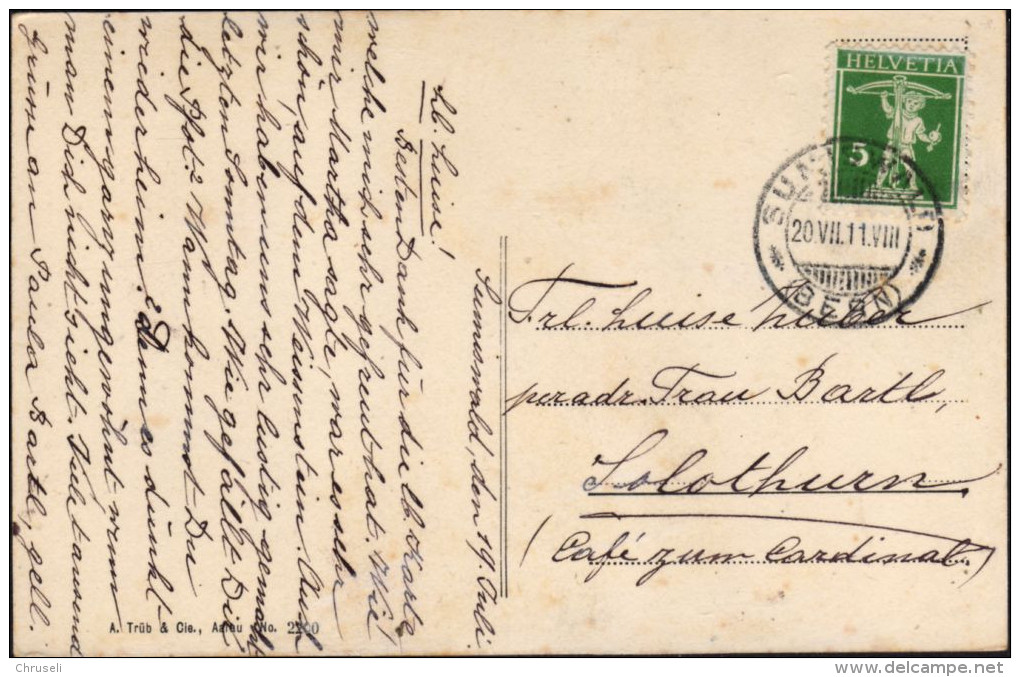 Sumiswald, den 19. Juli.
Lb. Luise!
Besten Dank für die lb. Karte
welche mich sehr gefreut hat. Wie
mir Martha sagte, war es sehr
schön, auf dem Weissenstein. Auch
wir haben uns sehr lustig gemacht
letzten Sonntag. Wie gefällt Dir
die Phot.? Wann kommst Du
wieder heim? Denn es dünkt
einem ganz ungewohnt wenn
man Dich nicht sieht. Viele tausend
Grüsse an Paula Bartl, gell.
A. Trüb & Cie., Aarau No. 2200
HELVETIA
5
SUMISWALD
20.VII.11.VIII
(BERN)
Frl. Luise Huber
per adr. Frau Bartl,
Solothurn
(Café zum Cardinal)
Chruseli
delcampe.net